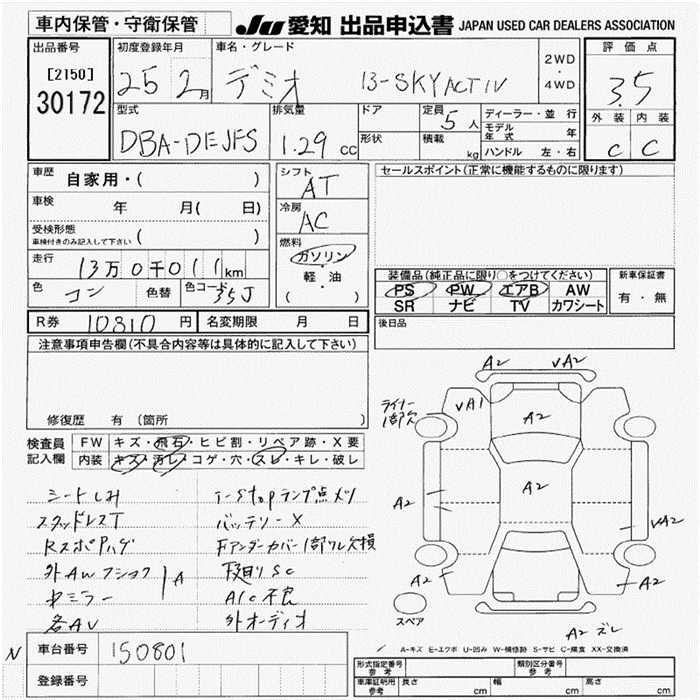 車内保管・守衛保管
JU 愛知 出品申込書 JAPAN USED CAR DEALERS ASSOCIATION
出品番号 初度登録年月 車名・グレード 評価点
[2150] 25 2月 デミオ 13-SKYACTIV 2WD・4WD 3.5
30172
型式 排気量 ドア 定員 5人 ディーラー・並行 外装 内装
DBA-DEJFS 1.29cc 形状 積載 kg モデル年式 年 C C
ハンドル 左・右
車歴 自家用・( ) シフト AT セールスポイント(正常に機能するものに限ります)
車検 年 月( 日) 冷房 AC
受検形態 車検付きのみ記入して下さい ( )
燃料 ガソリン 軽・油 ( )
走行 13万0千011km
色 コン 色替 色コード 35J
装備品(純正品に限り○をつけてください) 新車保証書
PS PW エアB AW 有・無
SR ナビ TV カワシート
R券 10810円 名変期限 月 日 後日品
注意事項申告欄(不具合内容等は具体的に記入して下さい)
修復歴 有 (箇所 )
検査員記入欄 FW キズ・飛石・ヒビ割・リペア跡・X要
内装 キズ・汚レ・コゲ・穴・スレ・キレ・破レ
シートしみ
スタッドレスT
Rスポハゲ
外AWフショク A
ミラー
社外AV
ランプ点メツ
バッテリーX
Fアンダーカバー1部ワレ欠損
下廻りSC
A/C不良
外オーディオ
A2 VA2
ライナー1部欠
VA1
A2
A2
A2
VA2
A2
A2
スペア
A2 ズレ
A-キズ E-エクボ U-凹み W-補修跡 S-サビ C-腐食 XX-交換済
N 車台番号 150801
登録番号
形式指定番号 参考 類別区分番号 参考
車庫証明用 参考 長さ cm 幅 cm 高さ cm